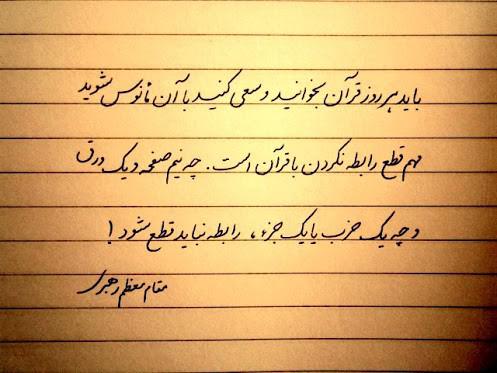 باید هر روز قرآن بخوانید و سعی کنید با آن مأنوس شوید
مهم قطع رابطه نکردن با قرآن است. چه نیم صفحه و یک ورق
و چه یک حزب یا یک جزء، رابطه نباید قطع شود!
مقام معظم رهبری